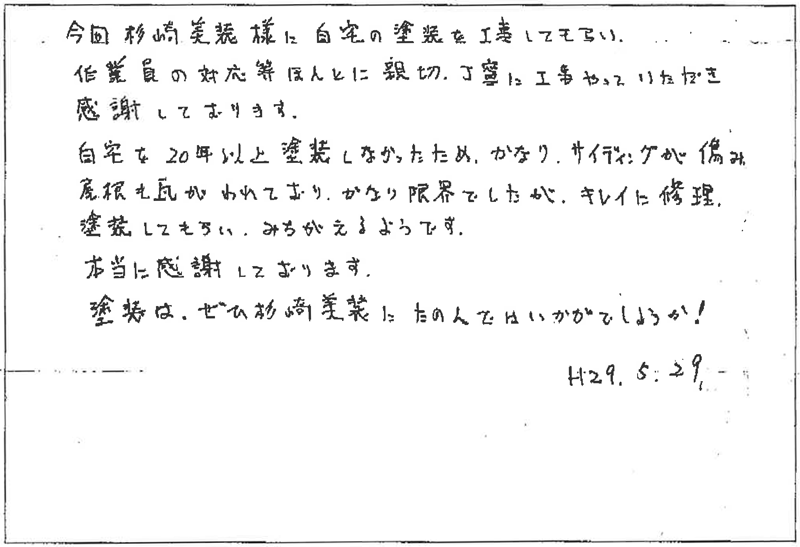 今回 杉崎美装様に 自宅の塗装を工事してもらい、
作業員の対応等ほんとに親切、丁寧に工事やっていただき
感謝しております。
自宅を20年以上塗装しなかったため、かなり、サイディングが傷み、
屋根も瓦がわれており、かなり限界でしたが、キレイに修理、
塗装してもらい、みちがえるようです。
本当に感謝しております。
塗装は、ぜひ杉崎美装にたのんではいかがでしょうか!
H29.5.29.